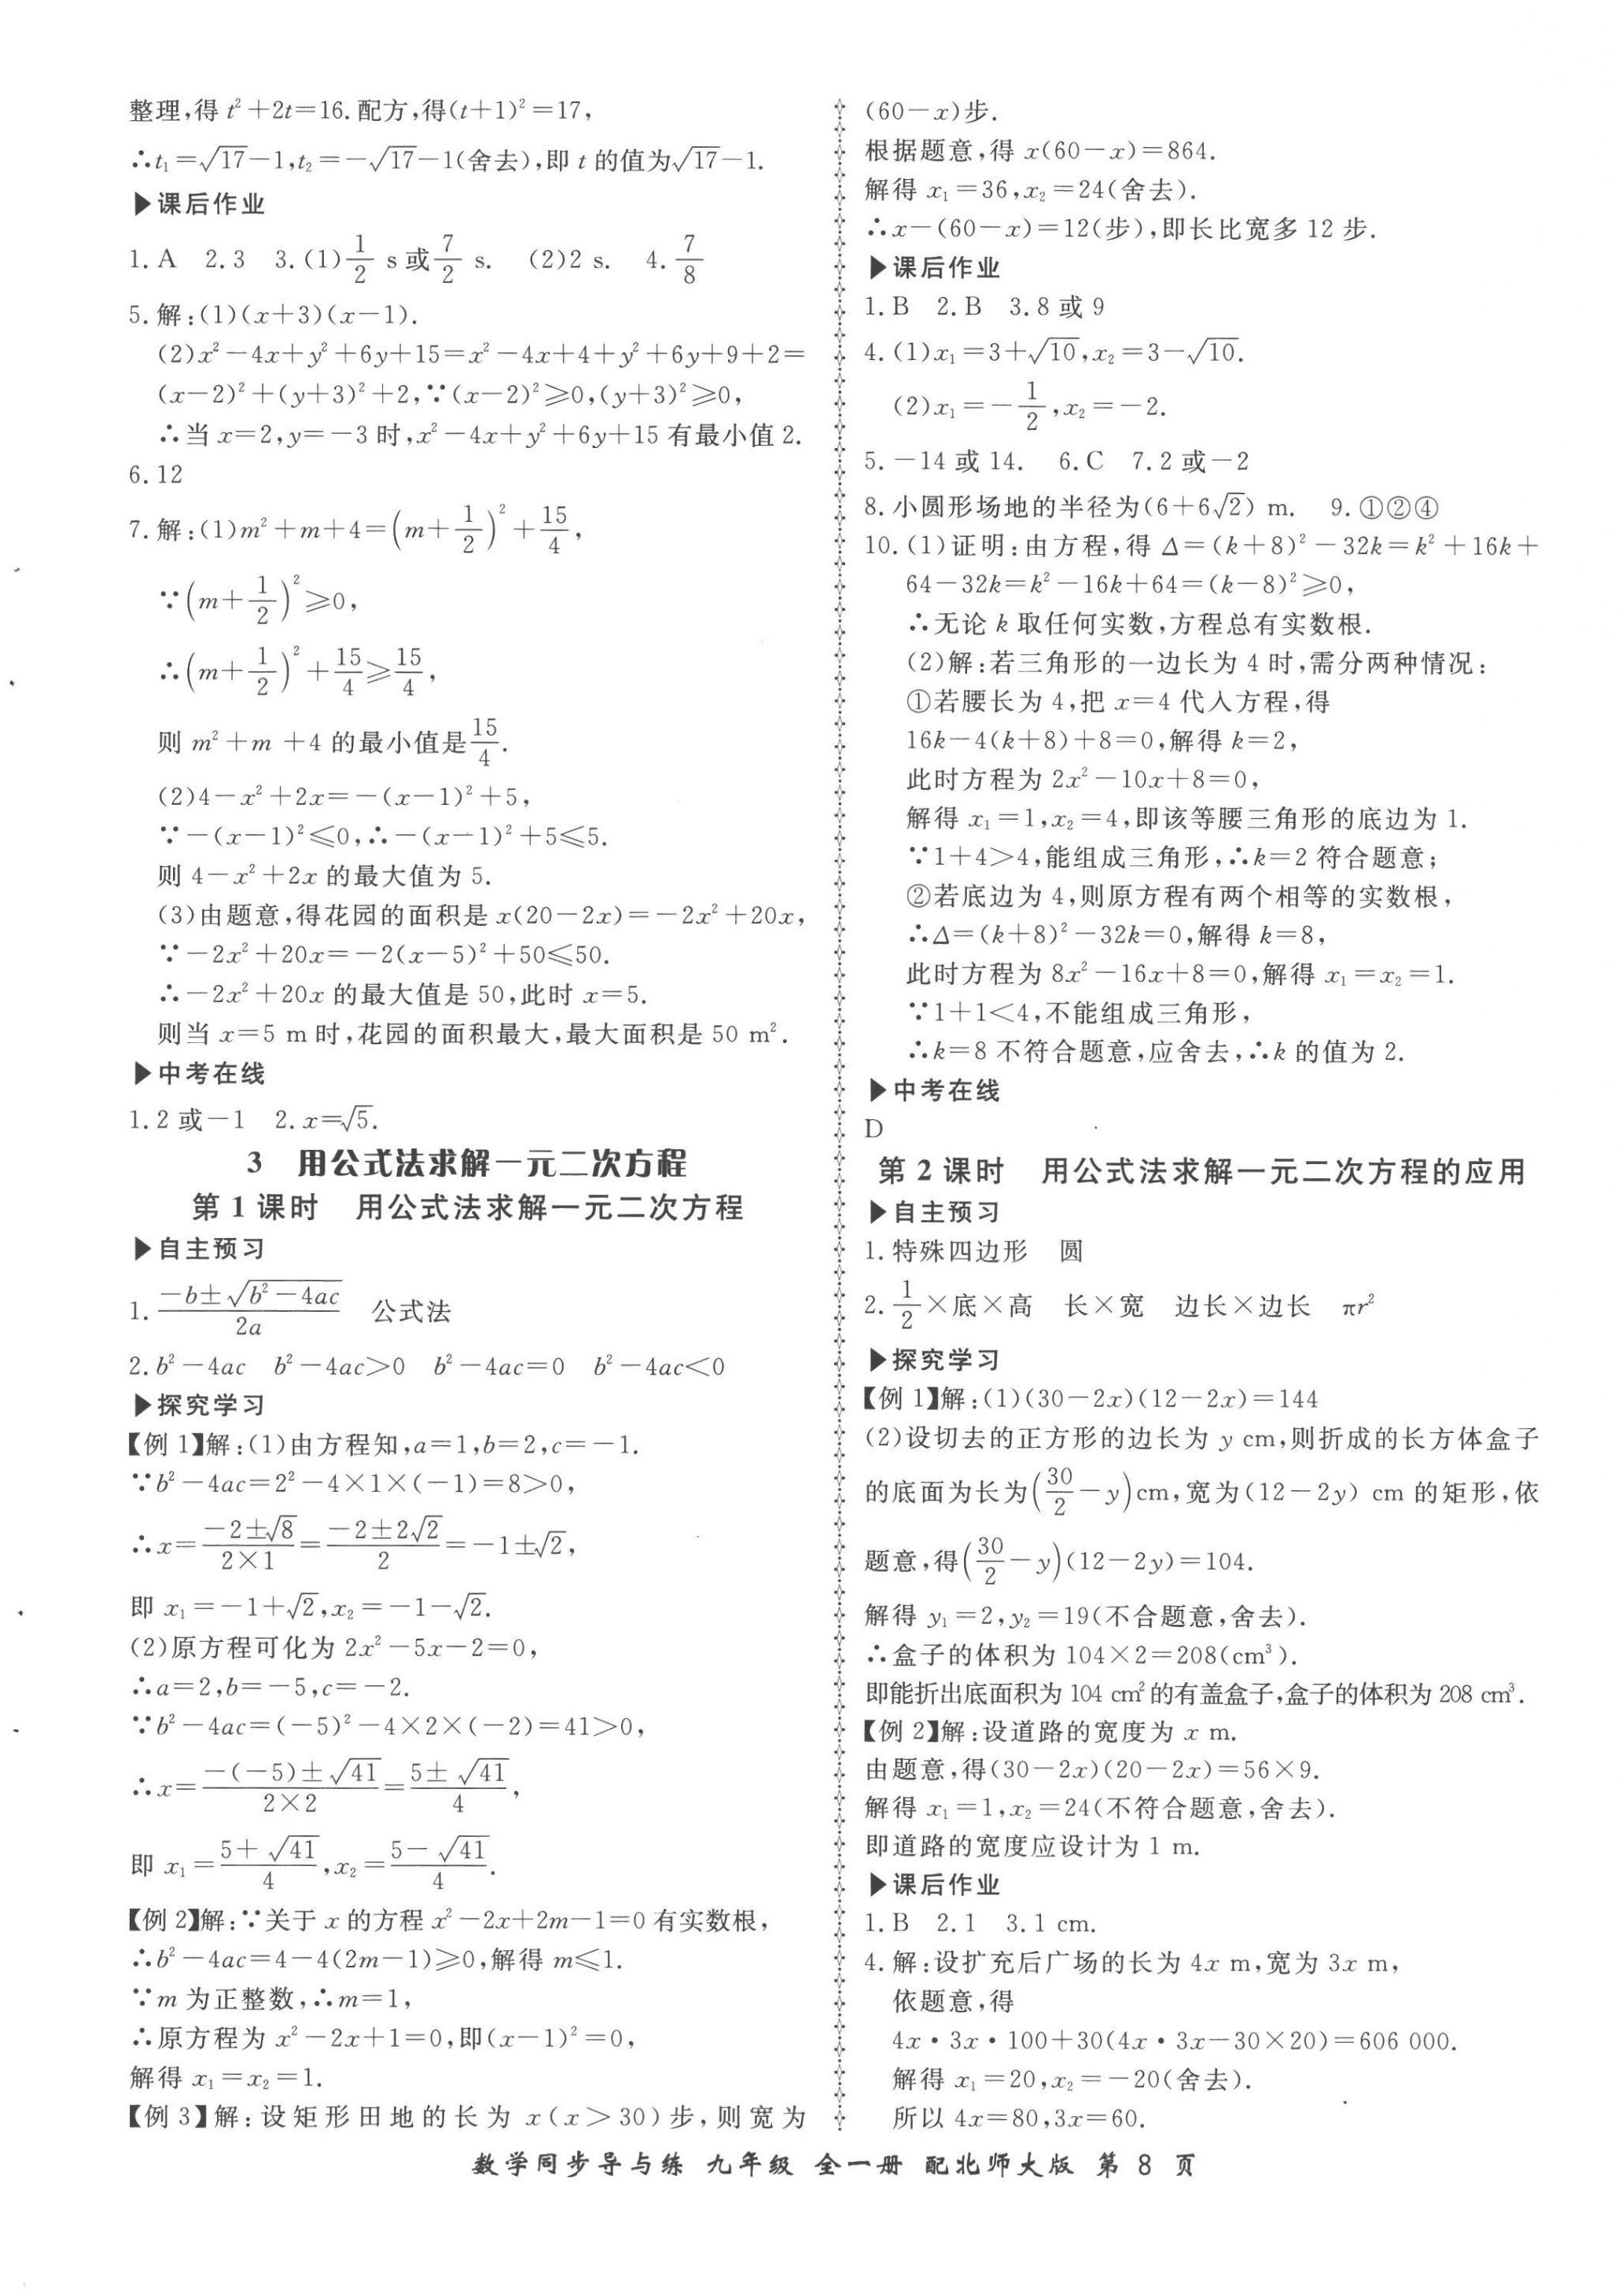 整理,得 t²+2t=16.配方,得(t+1)²=17,
∴t₁=√17-1,t₂=-√17-1(舍去),即 t 的值为√17-1.
▶课后作业
1.A 2.3 3.(1)1/2 s或7/2 s. (2)2 s. 4.7/8
5.解:(1)(x+3)(x-1).
(2)x²-4x+y²+6y+15=x²-4x+4+y²+6y+9+2=
(x-2)²+(y+3)²+2,∵(x-2)²≥0,(y+3)²≥0,
∴当 x=2,y=-3 时,x²-4x+y²+6y+15 有最小值 2.
6.12
7.解:(1)m²+m+4=(m+1/2)²+15/4,
∵(m+1/2)²≥0,
∴(m+1/2)²+15/4≥15/4,
则 m²+m+4 的最小值是15/4.
(2)4-x²+2x=-(x-1)²+5,
∵-(x-1)²≤0,∴-(x-1)²+5≤5.
则 4-x²+2x 的最大值为 5.
(3)由题意,得花园的面积是 x(20-2x)=-2x²+20x,
∵-2x²+20x=-2(x-5)²+50≤50.
∴-2x²+20x 的最大值是 50,此时 x=5.
则当 x=5 m 时,花园的面积最大,最大面积是 50 m².
▶中考在线
1.2 或-1 2.x=√5.
3 用公式法求解一元二次方程
第 1 课时 用公式法求解一元二次方程
▶自主预习
1.(-b±√(b²-4ac))/2a 公式法
2.b²-4ac b²-4ac>0 b²-4ac=0 b²-4ac<0
▶探究学习
【例 1】解:(1)由方程知,a=1,b=2,c=-1.
∵b²-4ac=2²-4×1×(-1)=8>0,
∴x=(-2±√8)/(2×1)=(-2±2√2)/2=-1±√2,
即 x₁=-1+√2,x₂=-1-√2.
(2)原方程可化为 2x²-5x-2=0,
∴a=2,b=-5,c=-2.
∵b²-4ac=(-5)²-4×2×(-2)=41>0,
∴x=(-(-5)±√41)/(2×2)=(5±√41)/4,
即 x₁=(5+√41)/4,x₂=(5-√41)/4.
【例 2】解:∵关于 x 的方程 x²-2x+2m-1=0 有实数根,
∴b²-4ac=4-4(2m-1)≥0,解得 m≤1.
∵m 为正整数,∴m=1,
∴原方程为 x²-2x+1=0,即(x-1)²=0,
解得 x₁=x₂=1.
【例 3】解:设矩形田地的长为 x(x>30)步,则宽为
(60-x)步.
根据题意,得 x(60-x)=864.
解得 x₁=36,x₂=24(舍去).
∴x-(60-x)=12(步),即长比宽多 12 步.
▶课后作业
1.B 2.B 3.8 或 9
4.(1)x₁=3+√10,x₂=3-√10.
(2)x₁=-1/2,x₂=-2.
5.-14 或 14. 6.C 7.2 或-2
8.小圆形场地的半径为(6+6√2) m. 9.①②④
10.(1)证明:由方程,得 Δ=(k+8)²-32k=k²+16k+
64-32k=k²-16k+64=(k-8)²≥0,
∴无论 k 取任何实数,方程总有实数根.
(2)解:若三角形的一边长为 4 时,需分两种情况:
①若腰长为 4,把 x=4 代入方程,得
16k-4(k+8)+8=0,解得 k=2,
此时方程为 2x²-10x+8=0,
解得 x₁=1,x₂=4,即该等腰三角形的底边为 1.
∵1+4>4,能组成三角形,∴k=2 符合题意;
②若底边为 4,则原方程有两个相等的实数根,
∴Δ=(k+8)²-32k=0,解得 k=8,
此时方程为 8x²-16x+8=0,解得 x₁=x₂=1.
∵1+1<4,不能组成三角形,
∴k=8 不符合题意,应舍去,∴k 的值为 2.
▶中考在线
D
第 2 课时 用公式法求解一元二次方程的应用
▶自主预习
1.特殊四边形 圆
2.1/2×底×高 长×宽 边长×边长 πr²
▶探究学习
【例 1】解:(1)(30-2x)(12-2x)=144
(2)设切去的正方形的边长为 y cm,则折成的长方体盒子
的底面为长为(30/2-y)cm,宽为(12-2y) cm 的矩形,依
题意,得(30/2-y)(12-2y)=104.
解得 y₁=2,y₂=19(不合题意,舍去).
∴盒子的体积为 104×2=208(cm³).
即能折出底面积为 104 cm²的有盖盒子,盒子的体积为 208 cm³.
【例 2】解:设道路的宽度为 x m.
由题意,得(30-2x)(20-2x)=56×9.
解得 x₁=1,x₂=24(不符合题意,舍去).
即道路的宽度应设计为 1 m.
▶课后作业
1.B 2.1 3.1 cm.
4.解:设扩充后广场的长为 4x m,宽为 3x m,
依题意,得
4x·3x·100+30(4x·3x-30×20)=606 000.
解得 x₁=20,x₂=-20(舍去).
所以 4x=80,3x=60.
数学同步导与练 九年级 全一册 配北师大版 第 8 页